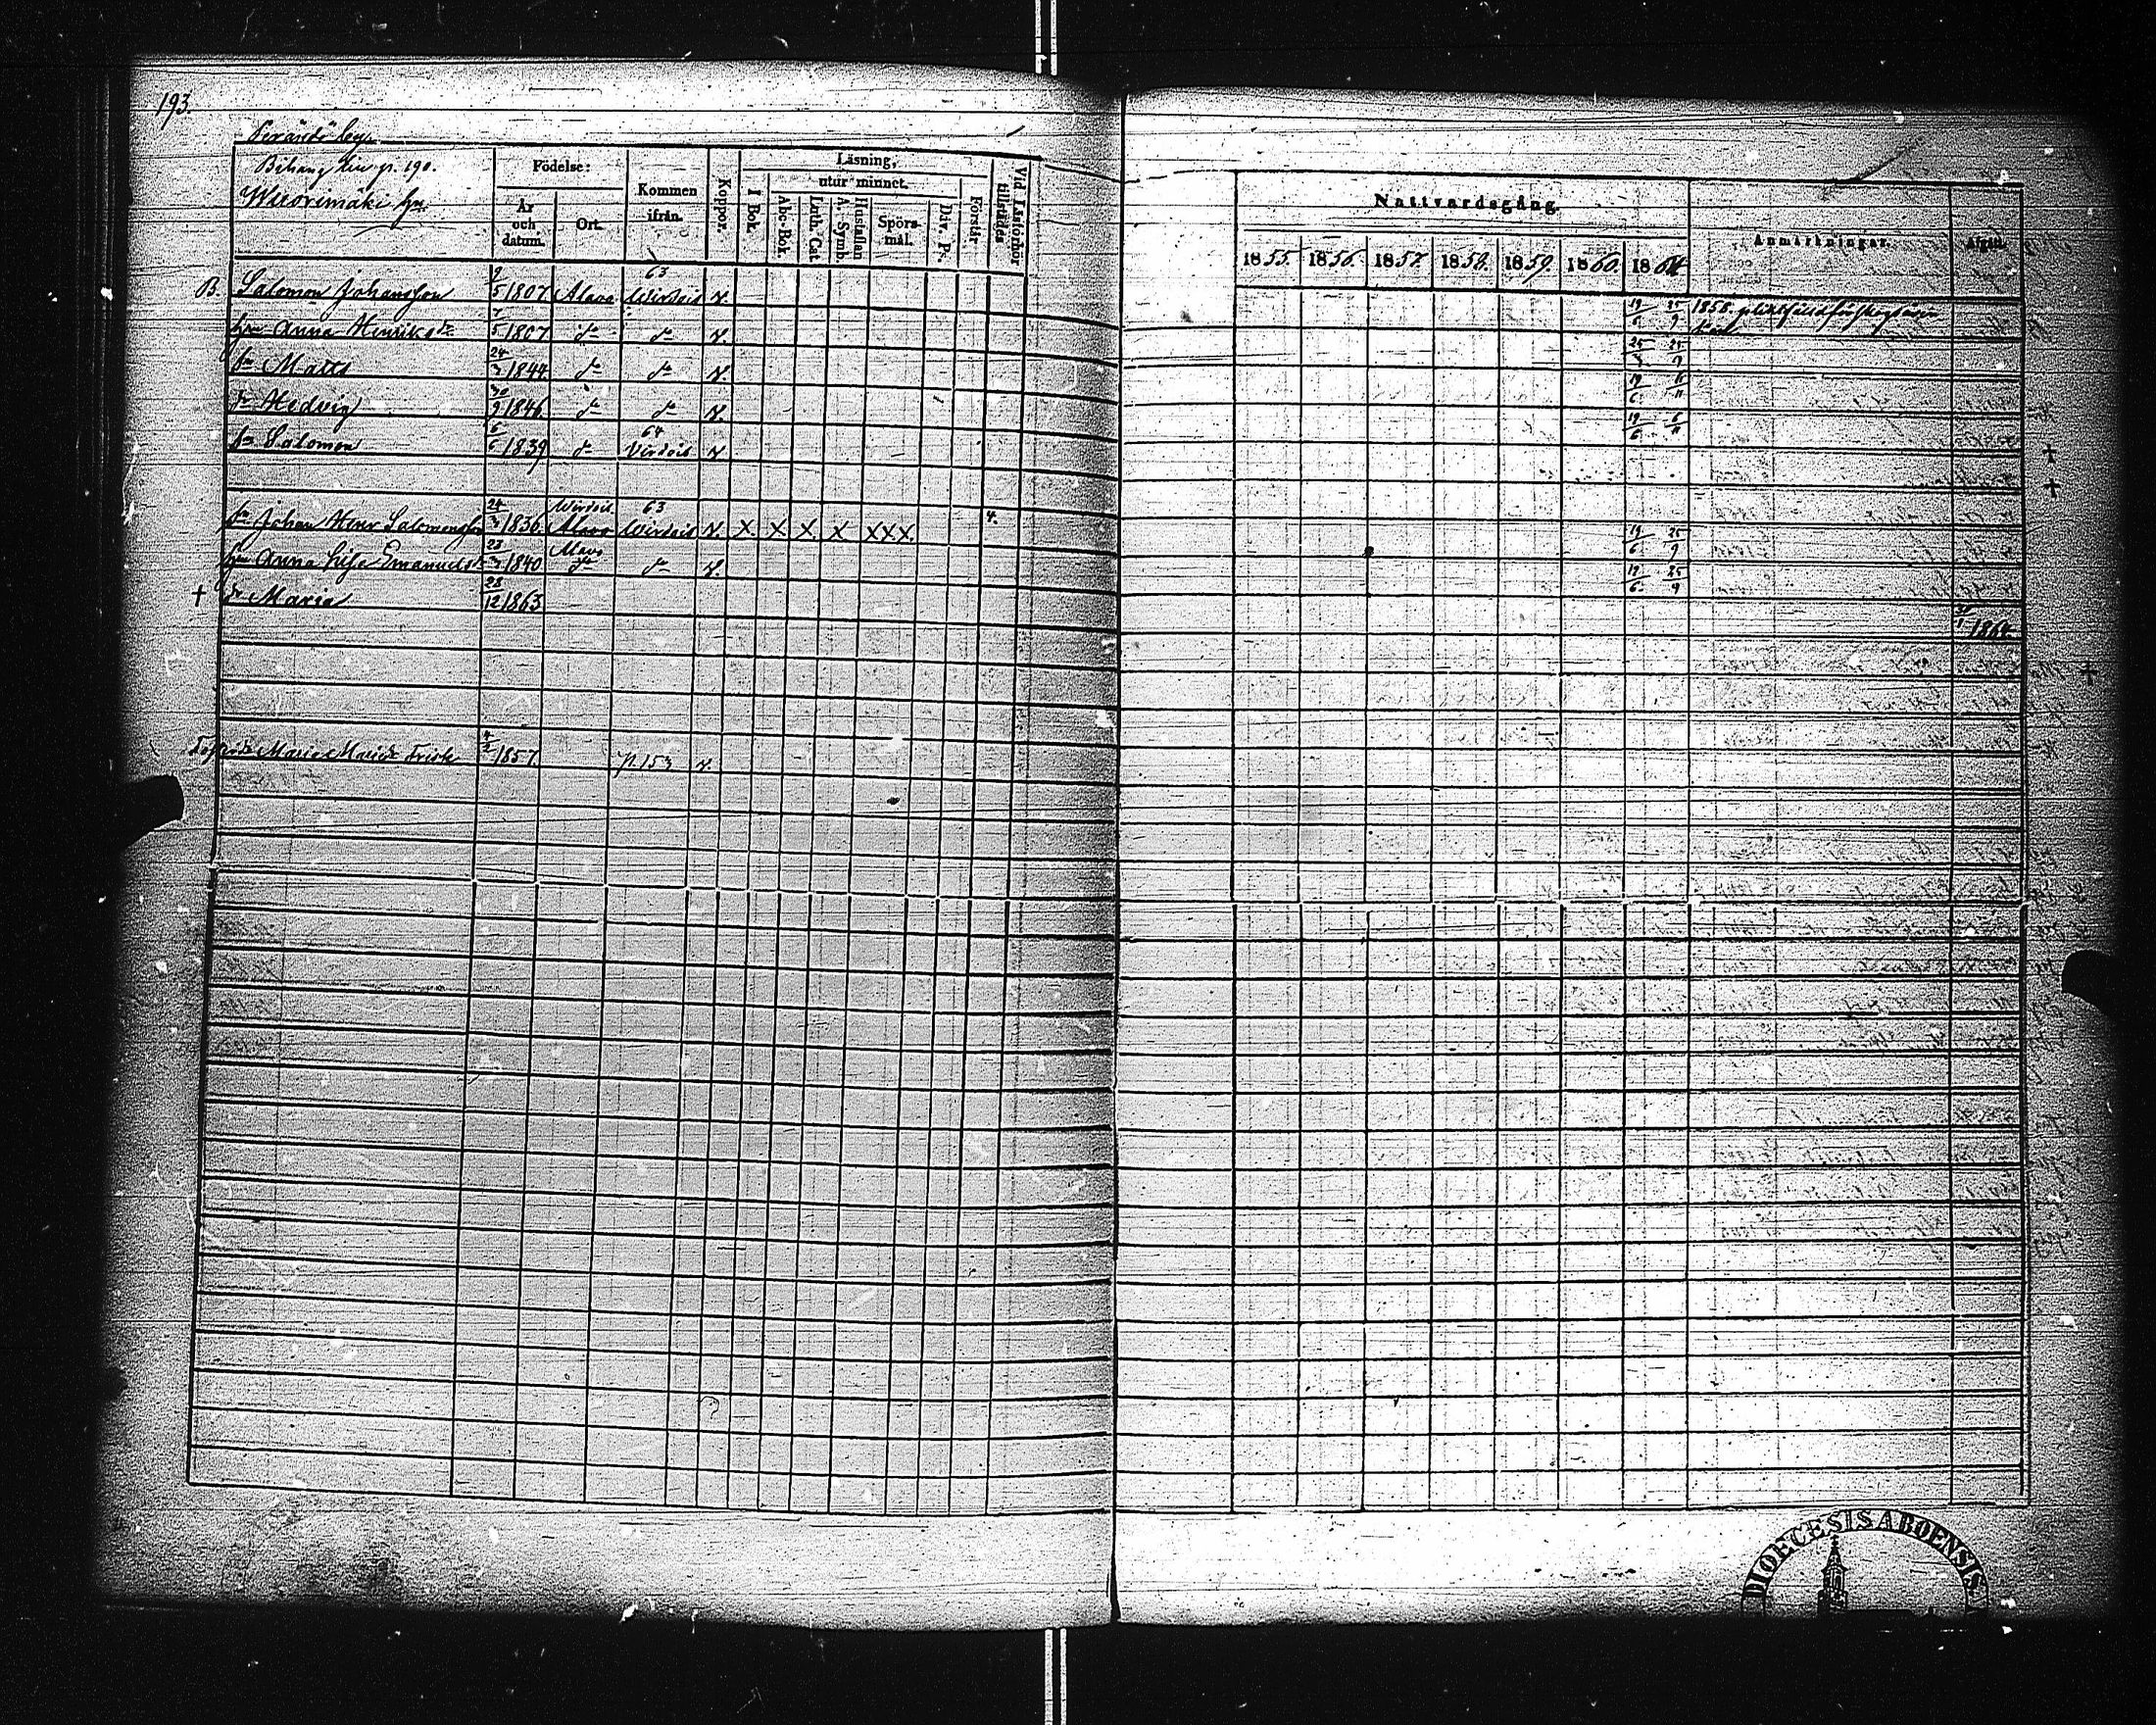 193.
Peränd
Bihang p. 190.
Wuorimäki
Födelse:
År och datum.
Ort.
Kommen ifrån.
Koppor.
Läsning,
I Bok.
utur minnet.
Abc-Bok.
Luth. Cat
Hustaflan A. Symb.
Spörsmål.
Dav. Ps.
Förstår
Vid Läsförhör tillstädes
Nattvardsgång.
1855. 1856. 1857. 1858. 1859. 1860. 1864
Anmärkningar.
Afgått.
B. Salomon Johansson 9/5 1807 Alavo 63 Wirdois v. 19/6 25/9 1858
hu Anna Henriksdr 7/5 1807 d:o d:o v. 25/3 25/9
sn Matts 24/3 1844 d:o d:o v. 19/6 6/11
dr Hedvig 30/9 1846 d:o d:o v. 19/6 6/11
sn Salomon 6/6 1839 d:o 64 Virdois v.
sn Johan Henr Salomonsson 24/3 1836 Wirdois Alavo 63 Wirdois v. X X X X XXX 4. 19/6 25/9
hu Anna Lisa Emanuelsdr 23/3 1840 Alavo d:o d:o v. 19/6 25/9
† dr Maria 28/12 1863 1864
Maria Frisk 4/2 1857 p. 153 v.
DIOECESIS ABOENSIS